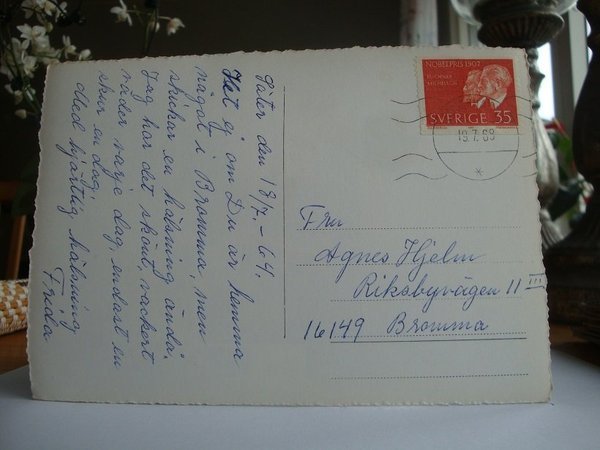 Säter den 18/7 - 69.
Vet ej om Du är hemma
något i Bromma, men
skickar en hälsning ändå.
Jag har det skönt, vackert
väder varje dag, endast en
skur en dag.
Med hjärtlig hälsning
Frida
NOBELPRIS 1907
BUCHNER
MICHELSON
SVERIGE 35
19.7.69
Fru
Agnes Hjelm
Riksbyvägen 11 III
16149 Bromma